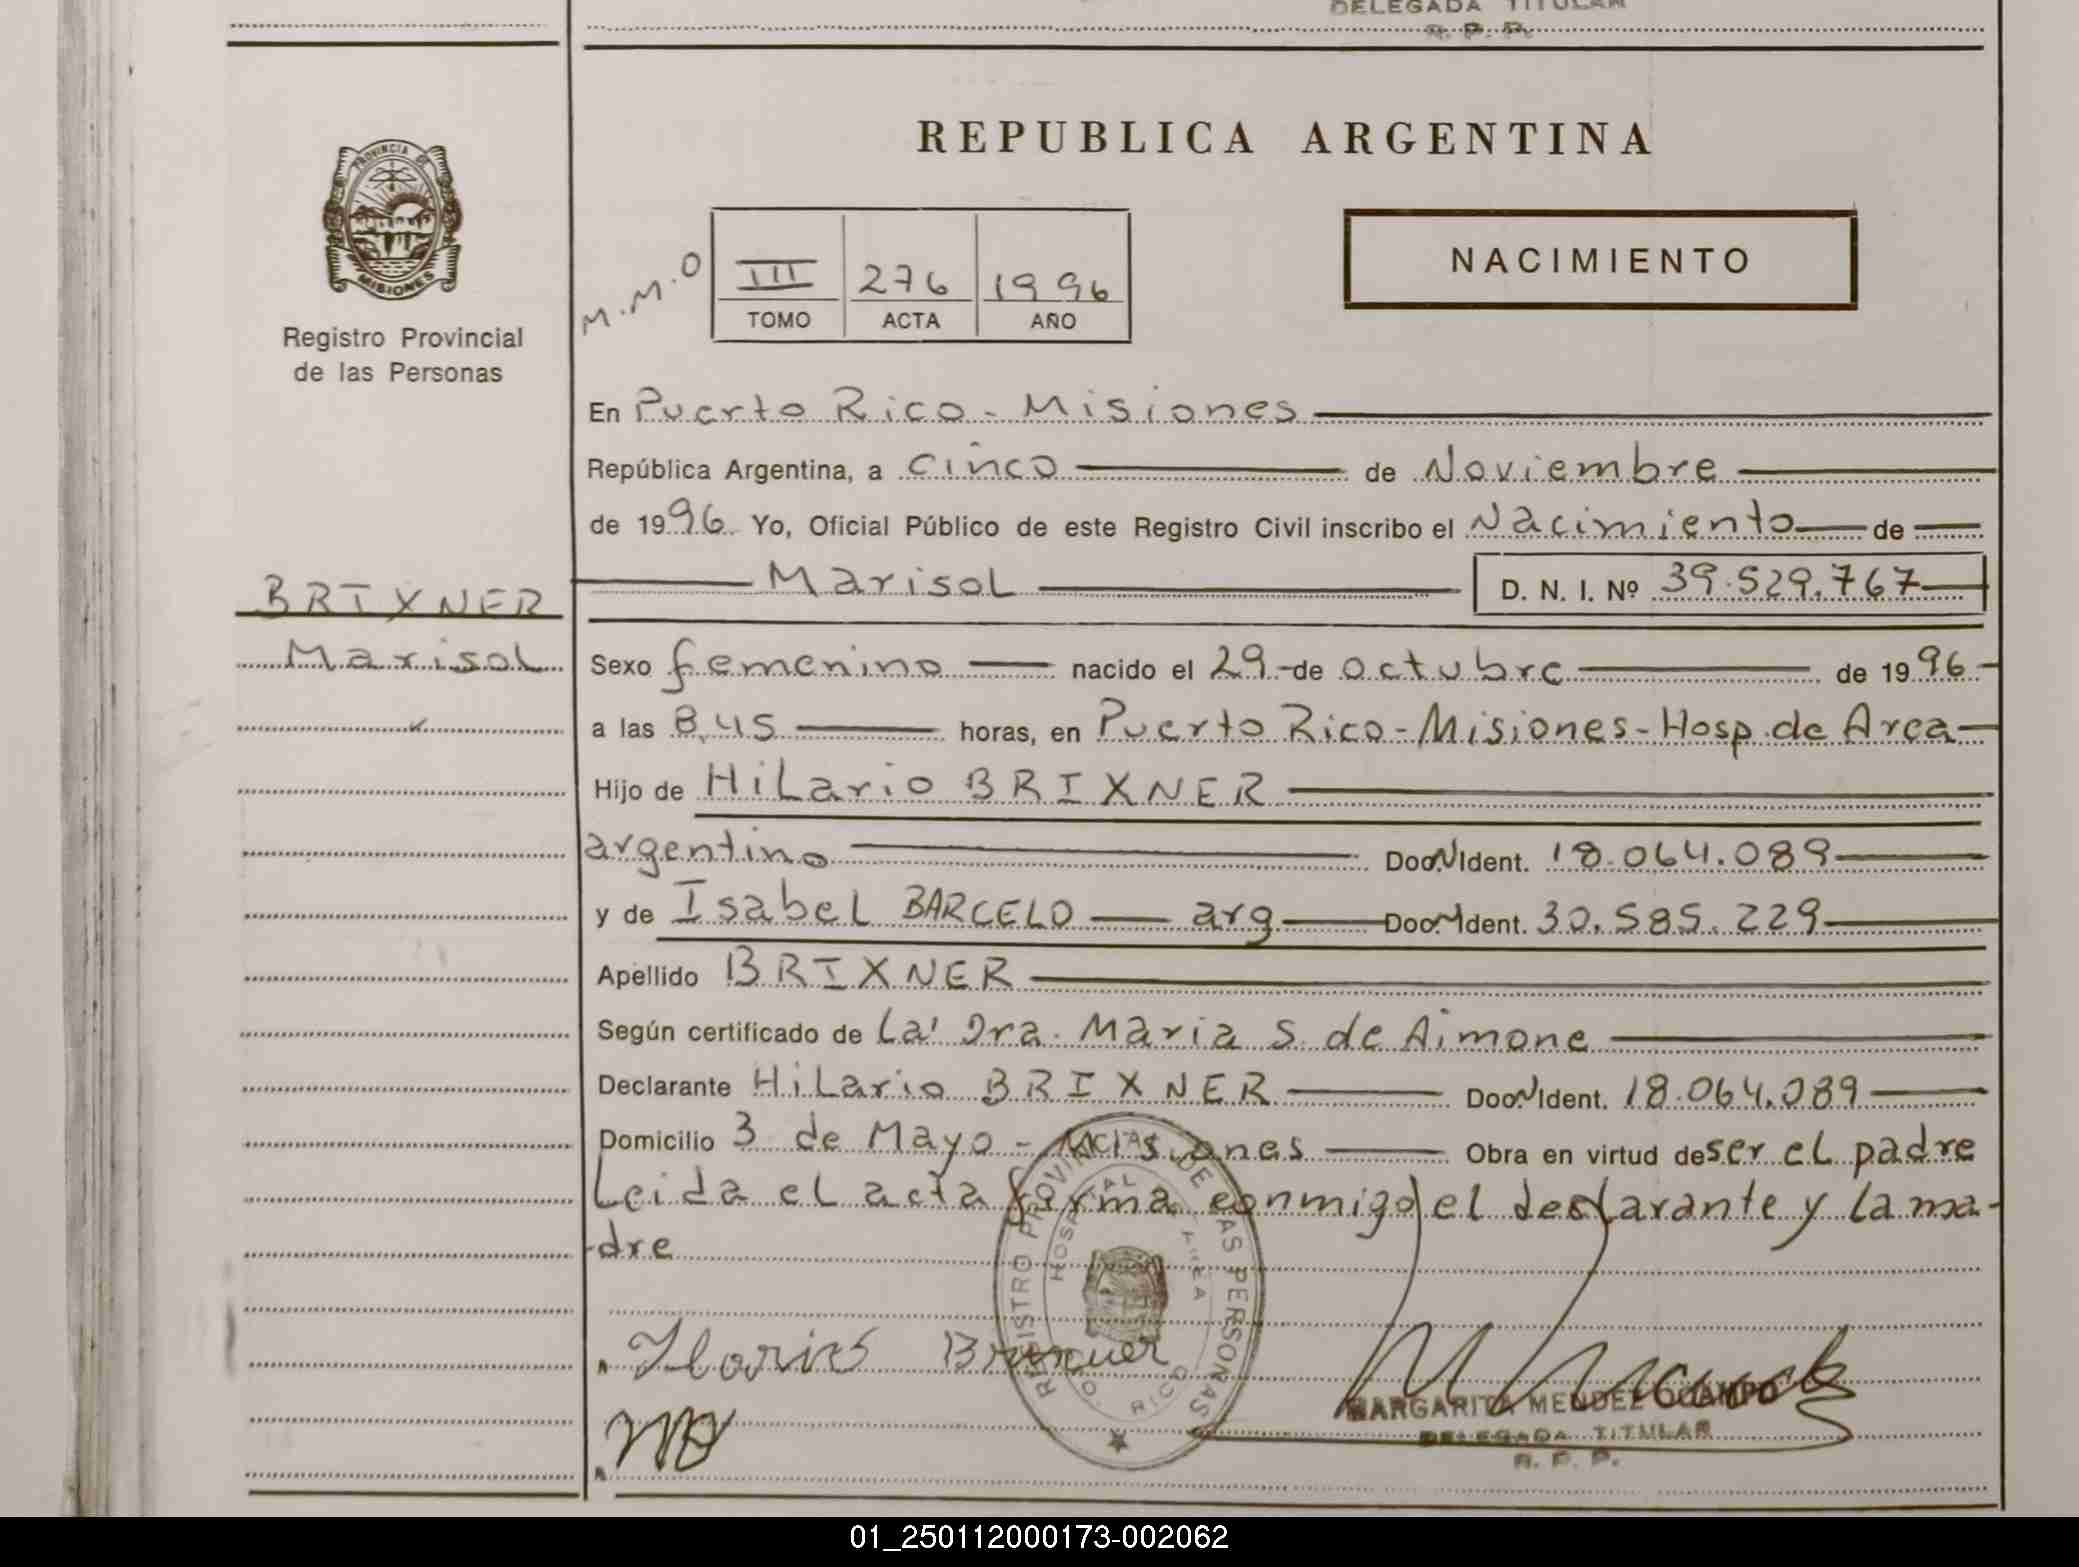 DELEGADA TITULAR
R. P. P.
REPUBLICA ARGENTINA
PROVINCIA DE
MISIONES
Registro Provincial
de las Personas
M.M.O
III 276 1996
TOMO ACTA AÑO
NACIMIENTO
En Puerto Rico - Misiones
República Argentina, a cinco de Noviembre
de 1996 Yo, Oficial Público de este Registro Civil inscribo el Nacimiento de
BRIXNER
Marisol
Marisol D. N. I. Nº 39.529.767
Sexo femenino nacido el 29 de octubre de 1996
a las 8,45 horas, en Puerto Rico - Misiones - Hosp. de Area
Hijo de Hilario BRIXNER
argentino Doc.N.Ident. 18.064.089
y de Isabel BARCELO arg Doc.N.Ident. 30.585.229
Apellido BRIXNER
Según certificado de La Dra. Maria S. de Aimone
Declarante Hilario BRIXNER Doc.N.Ident. 18.064.089
Domicilio 3 de Mayo - Misiones Obra en virtud de ser el padre
Leida el acta firma conmigo el declarante y la ma-
dre
REGISTRO PROVINCIAL DE LAS PERSONAS
HOSPITAL AREA
PTO. RICO
MARGARITA MENDEZ OCAMPO
DELEGADA TITULAR
R. P. P.
01_250112000173-002062